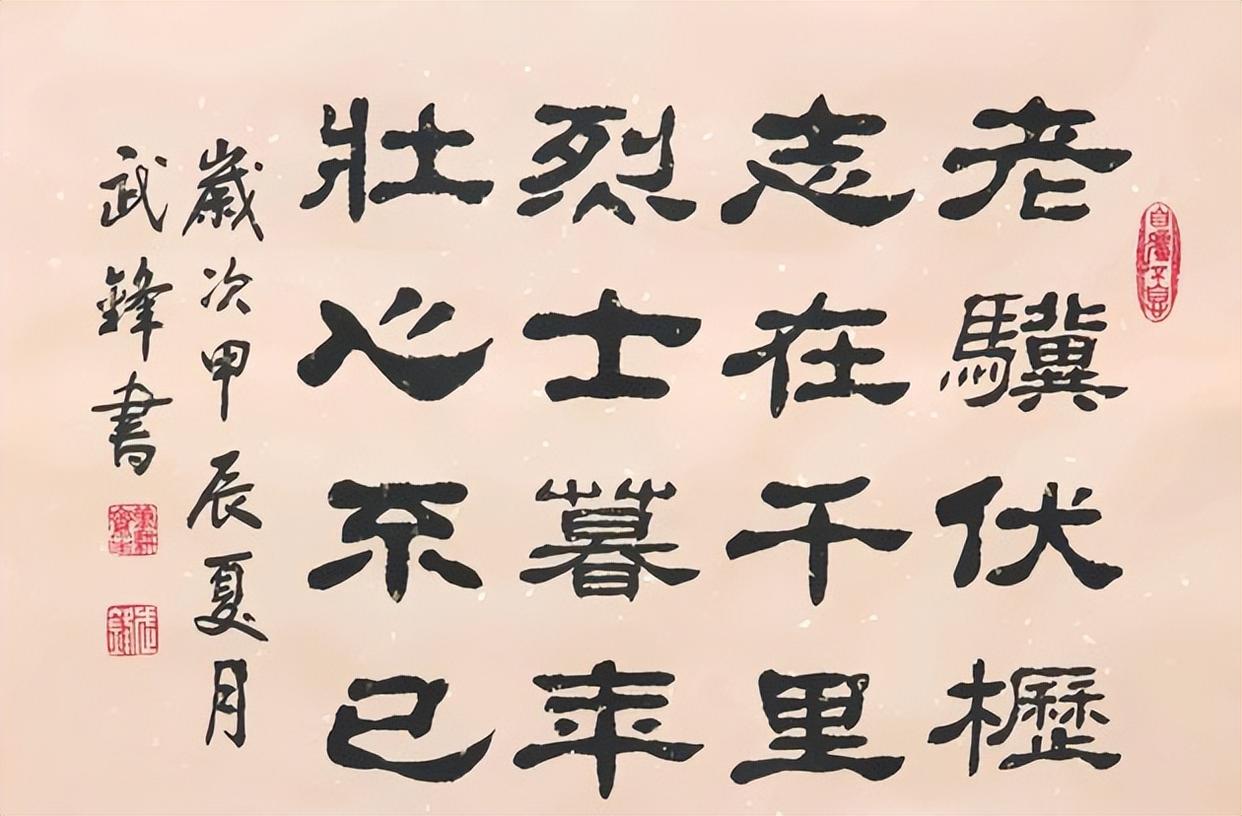 老驥伏櫪
志在千里
烈士暮年
壯心不已
歲次甲辰夏月
武鋒書
自彊不息